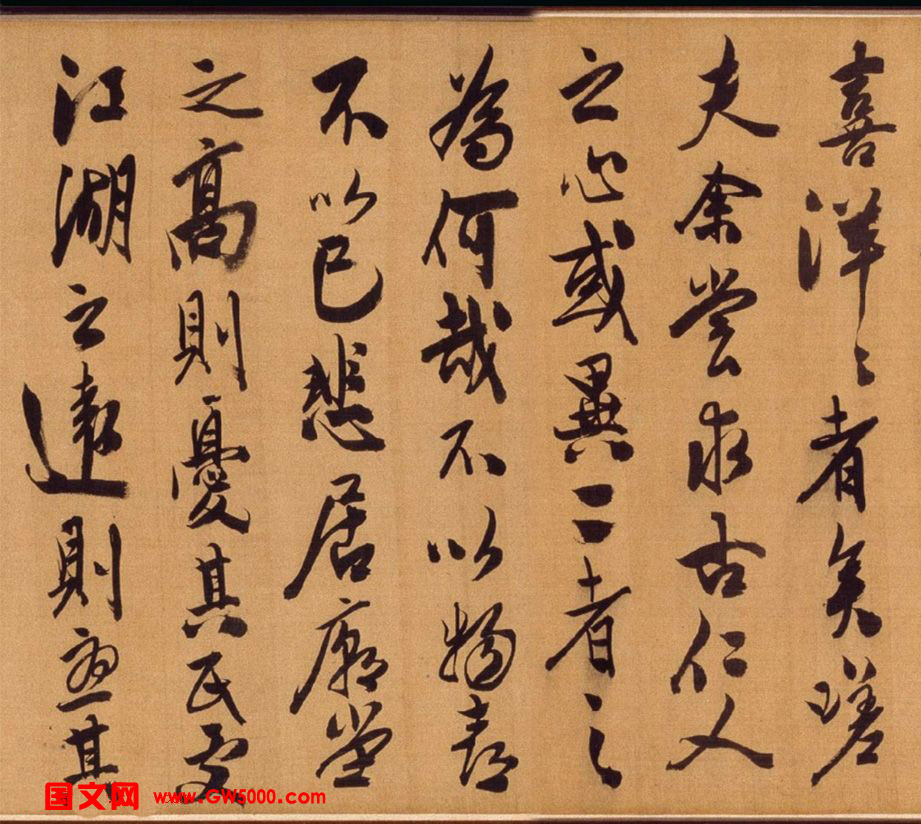 喜洋〻者矣嗟
夫余嘗求古仁人
之心或異二者之
為何哉不以物喜
不以己悲居廟堂
之高則憂其民處
江湖之遠則憂其
国文网 www.GW5000.com